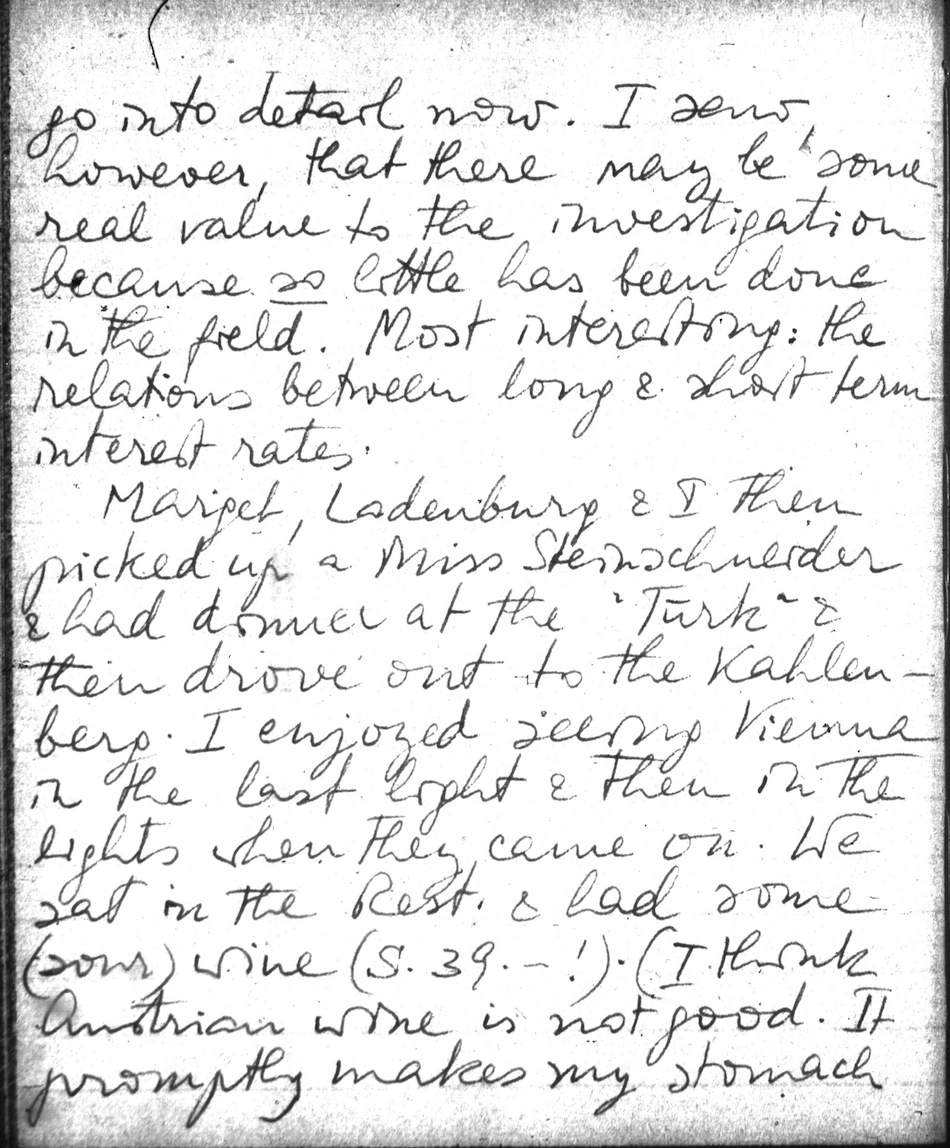 go into detail now. I
however, that there may be some
real value to the investigation
because so little has been done
in the field. Most interesting: the
relations between long & short term
interest rates.
Marget, Ladenburg & I then
picked up a Miss Steinschneider
& had dinner at the "Türk" &
then drove out to the Kahlen-
berg. I enjoyed seeing Vienna
in the last light & then in the
lights when they came on. We
sat in the Rest. & had some
(sour) wine (S. 39.-!). (I think
Austrian wine is not good. It
promptly makes my stomach